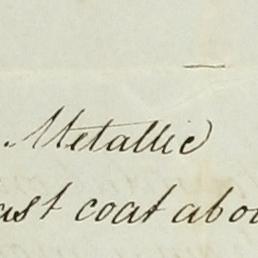 Metallic
ast coat abou